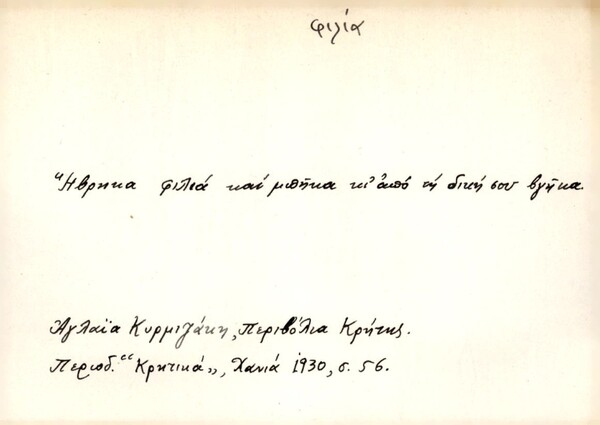 φιλία
"Ηβρηκα φιλιά καὶ μπῆκα κι' ἀπό τή δική σου βγῆκα.
Ἀγλαΐα Κυρμιζάκη, Περιβόλια Κρήτης.
Περιοδ. "Κρητικά„, Χανιά 1930, σ. 56.